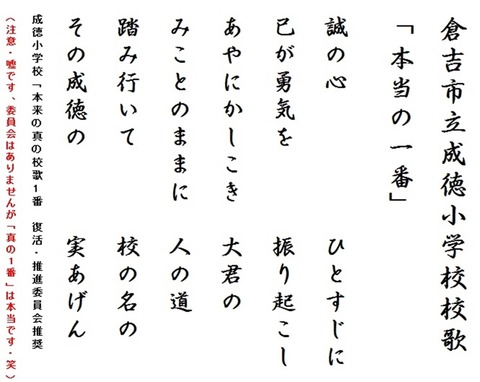 倉吉市立成徳小学校校歌
「本当の一番」
誠の心　ひとすじに
已が勇気を　振り起こし
あやにかしこき　大君の
みことのままに　人の道
踏み行いて　校の名の
その成徳の　実あげん
成徳小学校「本来の真の校歌1番　復活・推進委員会推奨
（注意・嘘です、委員会はありませんが「真の1番」は本当です・笑）